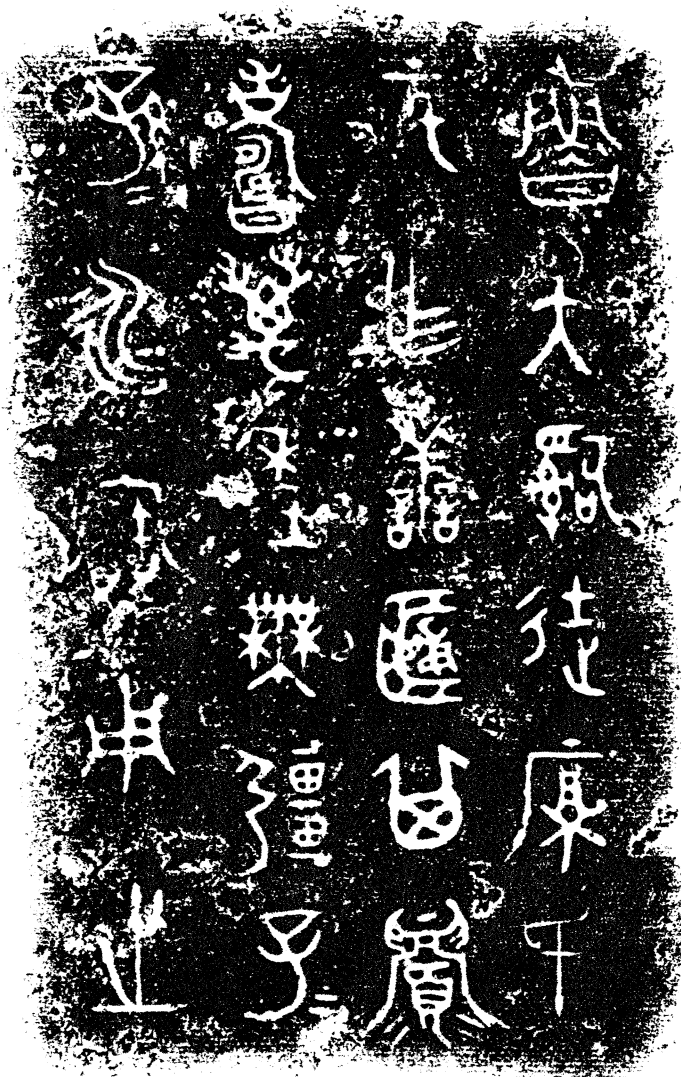 魯大𤔲徒厚氏
元乍善簠其眉
壽萬年無疆子=
孫=永寶用之